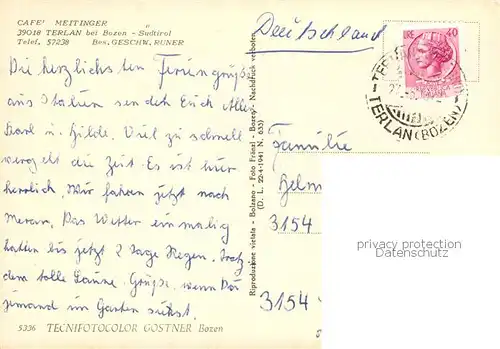 CAFE' MEITINGER
39018 TERLAN bei Bozen - Südtirol
Telef. 57238 Bes. GESCHW. RUNER
Die herzlichsten Feriengrüße
aus Italien sendet Euch Allen
Karl u. Hilde. Viel zu schnell
vergeht die Zeit. Es ist hier
herrlich. Wir fahren jetzt nach
Meran. Das Wetter einmalig
hatten bis jetzt 2 Tage Regen. Trotz
dem tolle Laune. Grüße, wenn Du
jemand im Garten siehst.
5336 TECNIFOTOCOLOR GOSTNER Bozen
Riproduzione vietata - Bolzano - Foto Frasnelli - Bozen - Nachdruck verboten
(D. L. 22-4-1941 N. 633)
Deutschland
LIRE 40
TERLAN (BOZEN)
Familie
Helm
3154
3154
privacy protection
Datenschutz